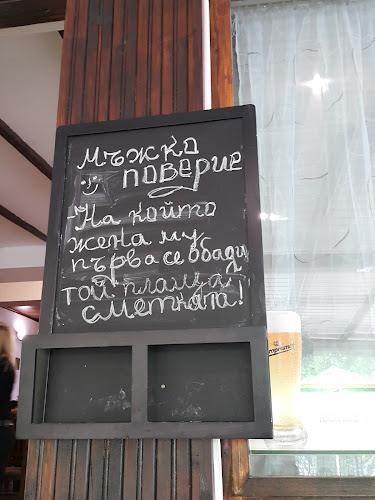 Мъжко
поверие
-На който
жена му
първа се обади
той плаща
сметката!